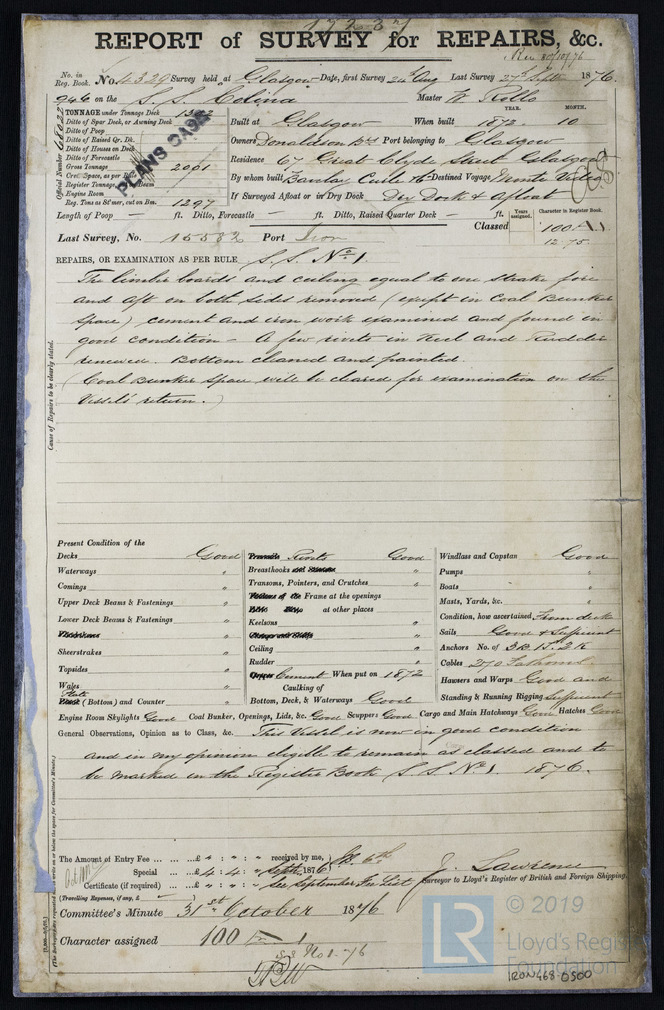 REPORT of SURVEY for REPAIRS, &c.
Rec 30/10/76
No. in Reg. Book. No. 4329 Survey held at Glasgow Date, first Survey 24th Aug Last Survey 27th Septr 1876
946 on the S.S. Colina Master W Rollo
TONNAGE under Tonnage Deck
Ditto of Spar Deck, or Awning Deck
Ditto of Poop
Ditto of Raised Qr. Dk.
Ditto of Houses on Deck
Ditto of Forecastle
Gross Tonnage 2001
Crew Space, as per Rule
Register Tonnage, Beam
Engine Room
Reg. Tons as St'mer, cut on Bm. 1297
Official Number
PLANS CASE
YEAR. MONTH.
Built at Glasgow When built 1872 10
Owners Donaldson Brs Port belonging to Glasgow
Residence 67 Great Clyde Street Glasgow
By whom built Barclay Curle & Co Destined Voyage Monte Video
If Surveyed Afloat or in Dry Dock Dry Dock & Afloat
Length of Poop — ft. Ditto, Forecastle — ft. Ditto, Raised Quarter Deck — ft.
Classed Years assigned. Character in Register Book.
100 A 1
12.75
Last Survey, No. 15532 Port Iron
REPAIRS, OR EXAMINATION AS PER RULE S.S. No. 1.
The limber boards and ceiling equal to one strake fore
and aft on both sides removed (except in Coal Bunker
Space) cement and iron work examined and found in
good condition – A few rivets in Keel and Rudder
renewed. Bottom cleaned and painted.
(Coal Bunker Space will be cleared for examination on the
Vessels return.)
Cause of Repairs to be clearly stated.
Present Condition of the
Decks Good
Waterways "
Comings "
Upper Deck Beams & Fastenings "
Lower Deck Beams & Fastenings "
Sheerstrakes "
Topsides "
Wales "
Plate (Bottom) and Counter "
Rivets Good
Breasthooks "
Transoms, Pointers, and Crutches "
Frame at the openings "
at other places "
Keelsons "
Ceiling "
Rudder "
Cement When put on 1872
Caulking of
Bottom, Deck, & Waterways Good
Windlass and Capstan Good
Pumps "
Boats "
Masts, Yards, &c. "
Condition, how ascertained From deck
Sails Good & Sufficient
Anchors No. of 3B. 1S. 2K
Cables 270 Fathoms
Hawsers and Warps Good and
Standing & Running Rigging Sufficient
Engine Room Skylights Good Coal Bunker, Openings, Lids, &c. Good Scuppers Good Cargo and Main Hatchways Good Hatches Good
General Observations, Opinion as to Class, &c. This Vessel is now in good condition
and in my opinion eligible to remain as classed and to
be marked in the Register Book S.S. No. 1. 1876.
The Amount of Entry Fee ... ... ...£ " : " : " received by me,
Special ... ...£ 4 : 4 : " Septr. 1876
Certificate (if required) ... ...£ " : " : " See September Fee List
(Travelling Expenses, if any, £ )
J. Lawrence
Surveyor to Lloyd's Register of British and Foreign Shipping.
Committee's Minute 31st October 1876
Character assigned 100 A 1
S.S No 1-76
LR © 2019
Lloyd's Register
Foundation
RON468-0500